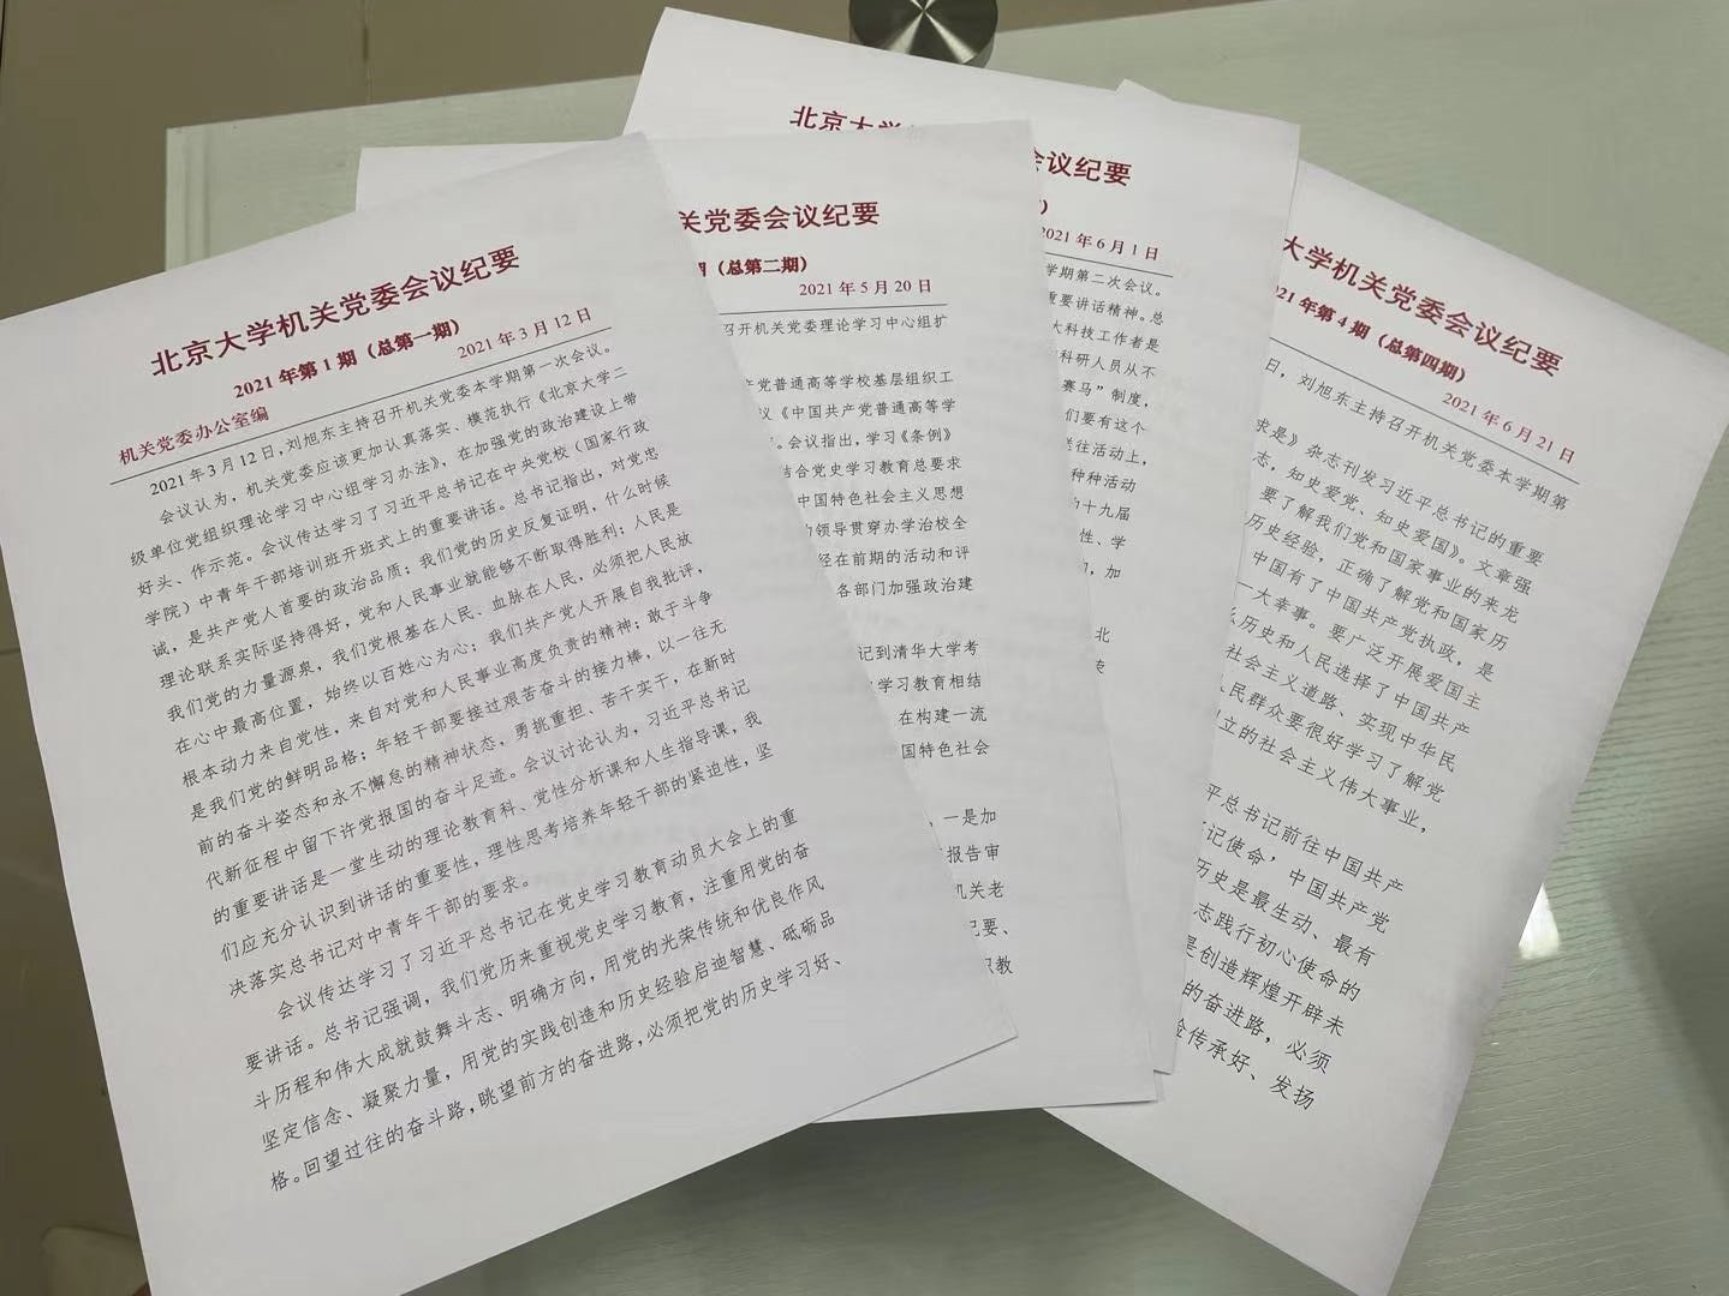 北京大学机关党委会议纪要
2021 年第 1 期（总第一期）
机关党委办公室编
2021 年 3 月 12 日
2021 年 3 月 12 日，刘旭东主持召开机关党委本学期第一次会议。
会议认为，机关党委应该更加认真落实、模范执行《北京大学二
级单位党组织理论学习中心组学习办法》，在加强党的政治建设上带
好头、作示范。会议传达学习了习近平总书记在中央党校（国家行政
学院）中青年干部培训班开班式上的重要讲话。总书记指出，对党忠
诚，是共产党人首要的政治品质；我们党的历史反复证明，什么时候
理论联系实际坚持得好，党和人民事业就能够不断取得胜利；人民是
我们党的力量源泉，我们党根基在人民、血脉在人民，必须把人民放
在心中最高位置，始终以百姓心为心；我们共产党人开展自我批评，
根本动力来自党性，来自对党和人民事业高度负责的精神；敢于斗争
是我们党的鲜明品格；年轻干部要接过艰苦奋斗的接力棒，以一往无
前的奋斗姿态和永不懈怠的精神状态，勇挑重担、苦干实干，在新时
代新征程中留下许党报国的奋斗足迹。会议讨论认为，习近平总书记
的重要讲话是一堂生动的理论教育科、党性分析课和人生指导课，我
们应充分认识到讲话的重要性，理性思考培养年轻干部的紧迫性，坚
决落实总书记对中青年干部的要求。
会议传达学习了习近平总书记在党史学习教育动员大会上的重
要讲话。总书记强调，我们党历来重视党史学习教育，注重用党的奋
斗历程和伟大成就鼓舞斗志、明确方向，用党的光荣传统和优良作风
坚定信念、凝聚力量，用党的实践创造和历史经验启迪智慧、砥砺品
格。回望过往的奋斗路，眺望前方的奋进路，必须把党的历史学习好、
关党委会议纪要
期（总第二期）
2021 年 5 月 20 日
召开机关党委理论学习中心组扩
产党普通高等学校基层组织工
议《中国共产党普通高等学
。会议指出，学习《条例》
结合党史学习教育总要求
中国特色社会主义思想
的领导贯穿办学治校全
经在前期的活动和评
各部门加强政治建
记到清华大学考
学习教育相结
在构建一流
国特色社会
，一是加
报告审
机关老
纪要、
识教
北京大学
会议纪要
2021 年 6 月 1 日
学期第二次会议。
重要讲话精神。总
大科技工作者是
科研人员从不
赛马”制度，
们要有这个
往活动上，
种种活动
的十九届
性、学
，加
北
大学机关党委会议纪要
21 年第 4 期（总第四期）
2021 年 6 月 21 日
日，刘旭东主持召开机关党委本学期第
求是》杂志刊发习近平总书记的重要
志，知史爱党、知史爱国》。文章强
要了解我们党和国家事业的来龙
历史经验，正确了解党和国家历
中国有了中国共产党执政，是
一大幸事。要广泛开展爱国主
么历史和人民选择了中国共产
社会主义道路、实现中华民
人民群众要很好学习了解党
立的社会主义伟大事业，
平总书记前往中国共产
记使命，中国共产党
历史是最生动、最有
志践行初心使命的
是创造辉煌开辟未
的奋进路，必须
验传承好、发扬